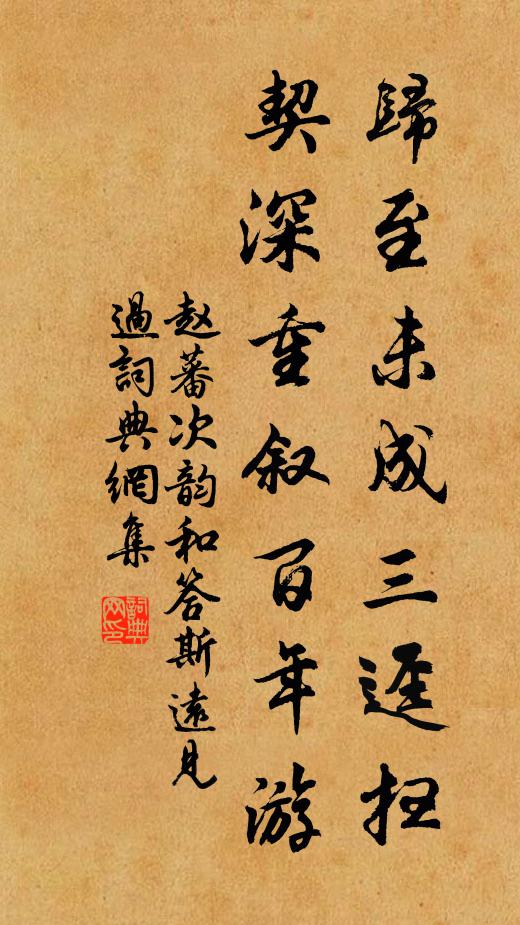 歸至未成三逕枉
契深重叙百年游
赵蕃次韵和答斯遠見
過詞典網集
詞典
网印